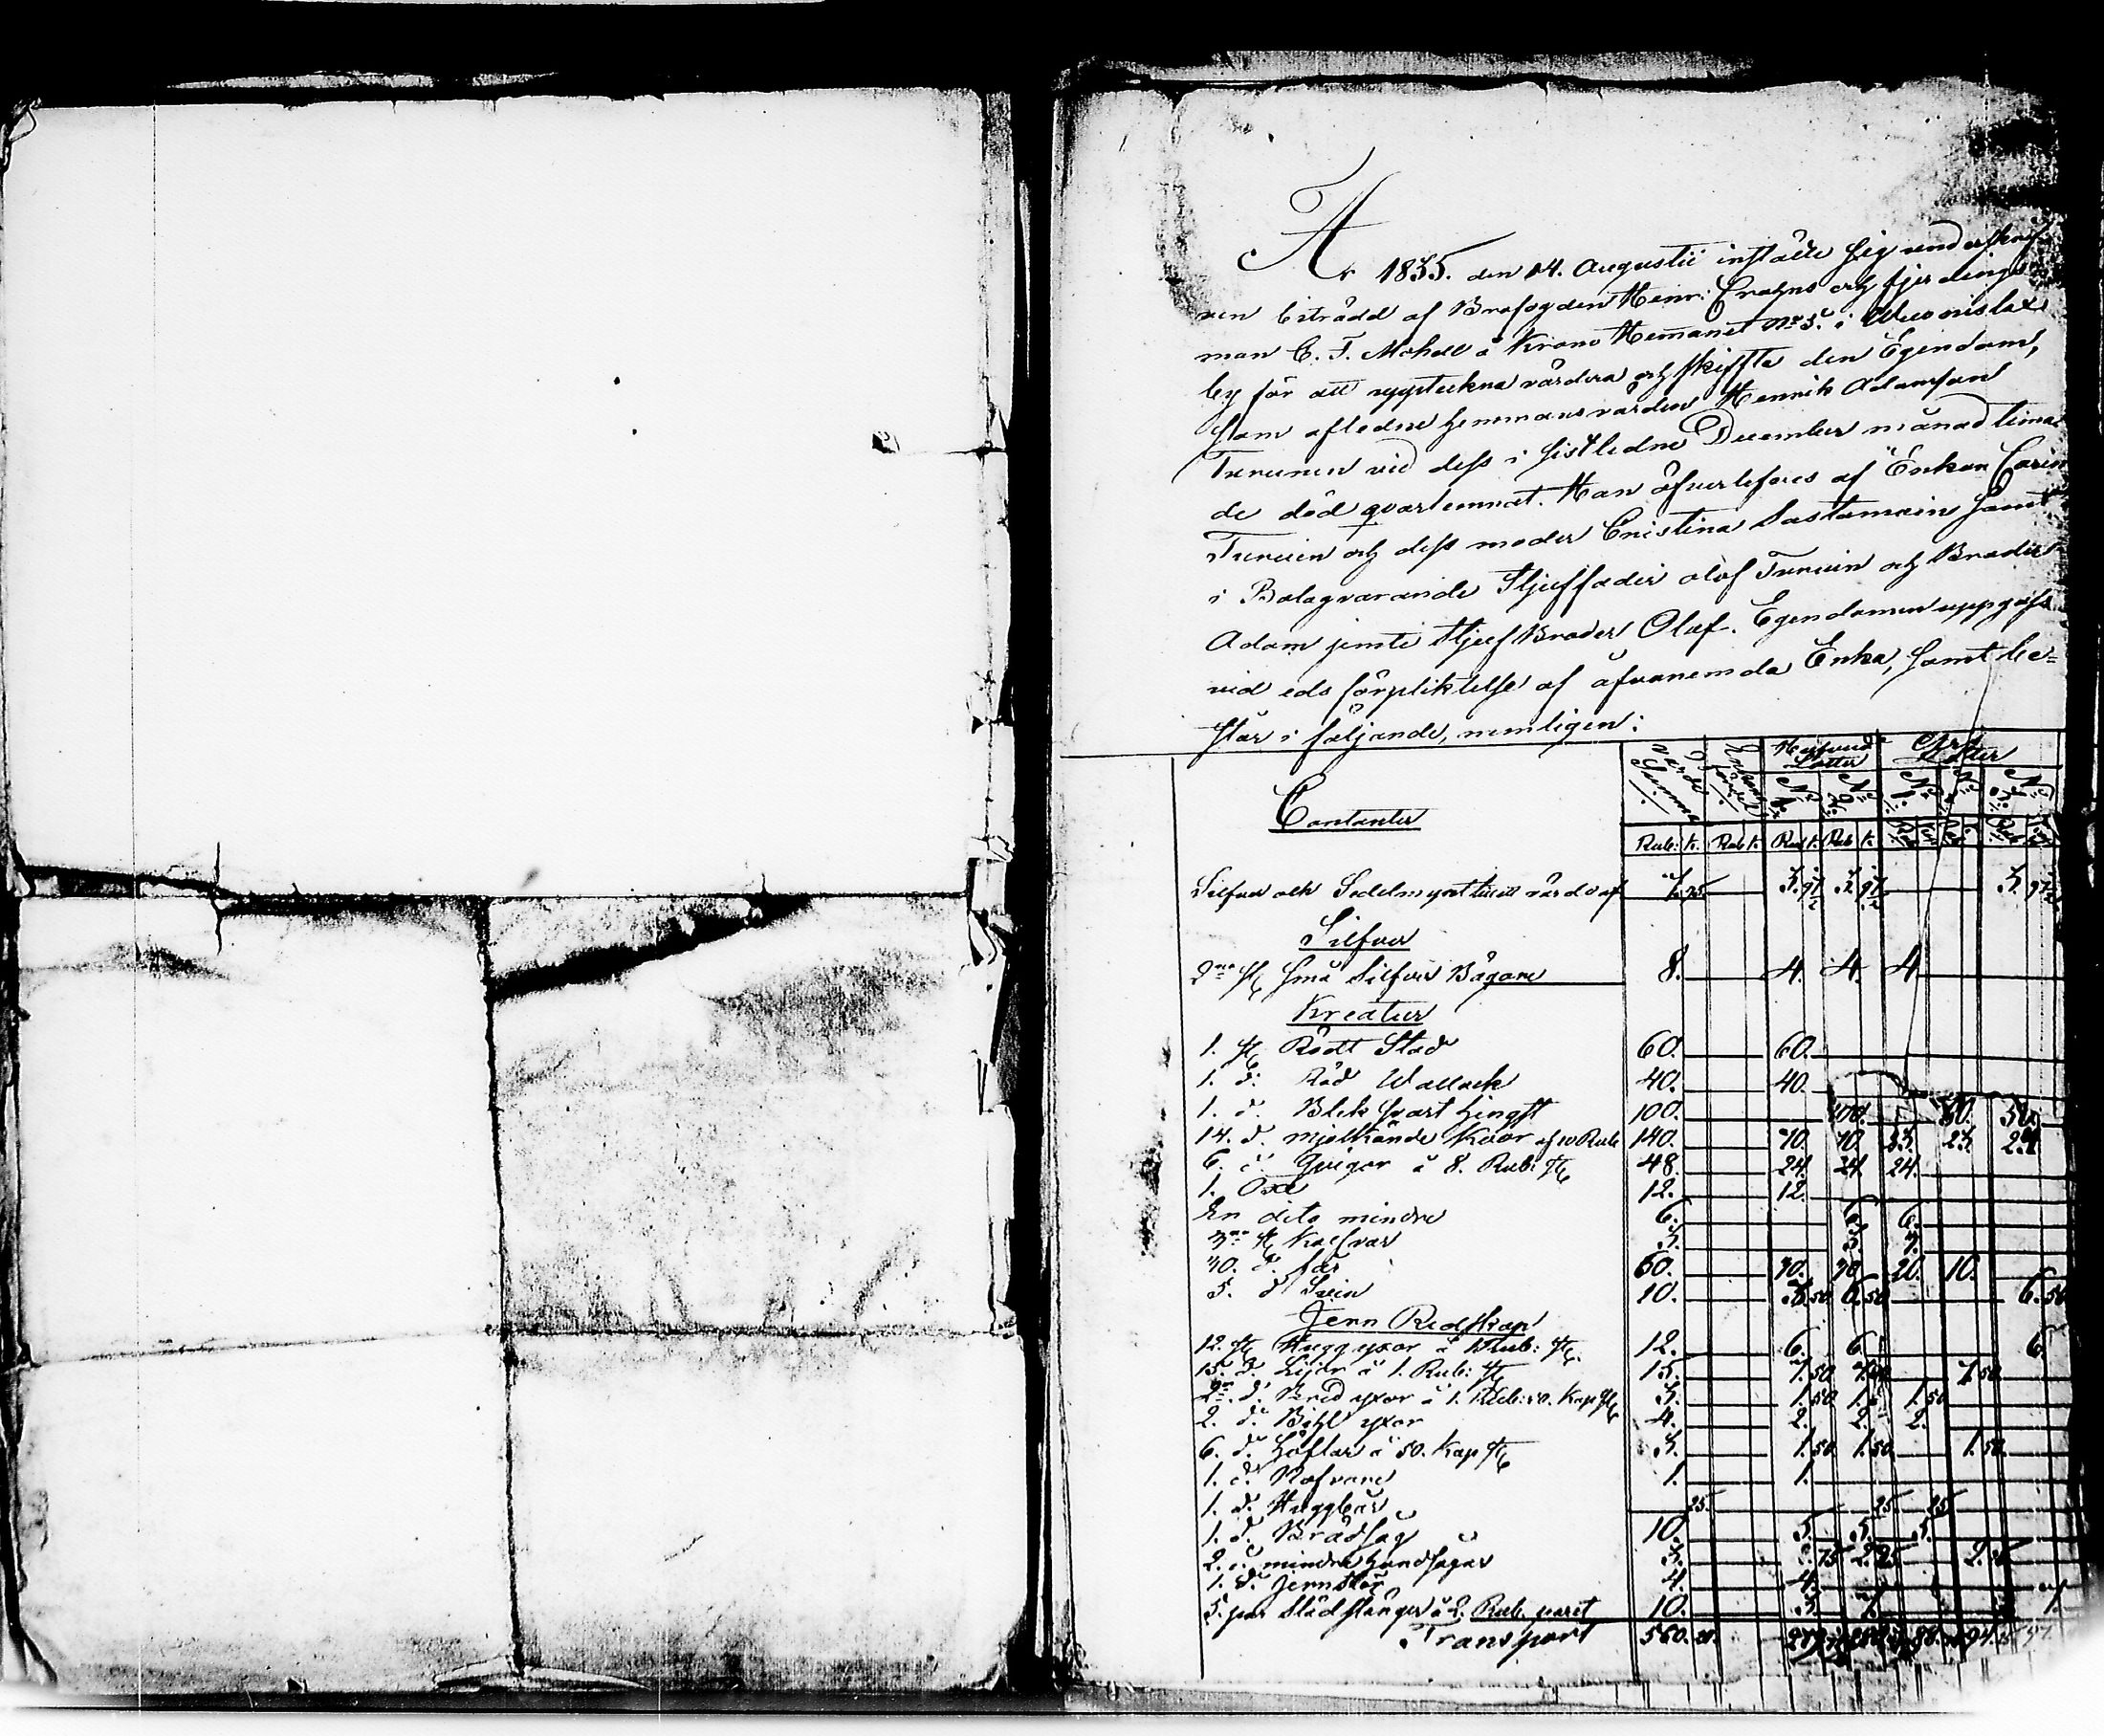 År 1835. den 14. Augustii instälte sig underskrif-
ven biträdd af Brofogden Henr: Crohns och fjerdings
man C. F. Mohell å Krono Hemanet No 5. i Weconislax
by för att uppteckna värdera och skiffta den Egendom,
som afledne hemmansvärden Henrik Adamson
Turunen vid dess i sistledne December månad timа
de död qvarlemnat. Han öfverlefves af Enkan Carin
Turuin och dess moder Cristina Sastamoin samt
i Bolagvarande Stjuffader Olof Turuin och Broder
Adam jemte Stjuf Broder Olof. Egendomen uppgafs
vid eds förpliktelse af åfvannemda Enka, samt be=
står i följande, nemligen:
Värde Summa Hufvud Lotter Arf Lotter
Contanter
Rub: k. Rub k. Rub k. Rub k.
Silfver och Sedelmynt till ett värde af 7. 95 3. 97½ 3. 97½ 3. 97½
Silfver
2ne st Små Silfver Bägare 8. 4. 4. 4
Kreatur
1. st Rödt Stod 60. 60.
1. d: Röd Wallack 40. 40.
1. d. Blek svart hingst 100. 100. 50. 50.
14. d. mjölkande Koor af 10 Rub 140. 70. 70. 23. 23. 24
6. d. Qvigor à 8. Rub: st 48. 24. 24. 24.
1. Oxe 12. 12.
En dito mindre 6. 6. 6.
3ne st Kalfvar 3. 3. 3.
40. d. får 60. 30. 30 20. 10.
5. d Svin 10. 3.50 6.50 6.50
Jern Redskap
12. st Huggyxor à 1 Rub: st. 12. 6. 6. 6.
15. d. Lijor à 1. Rub: st 15. 7.50 7.50 7.50.
2ne d. Bred yxor à 1. Rub: 50. Kop st 3. 1.50 1.50 1.50
2. d. Bihl yxor 4. 2. 2. 2.
6. d. Höflar à 50. Kop st 3. 1.50 1.50 1.50
1. d. Nafvare 1. 1.
1. d. Huggbär 25. 25. 25
1. d. Brädsåg 10. 5. 5. 5.
2. d. mindre handsågar 3. 75 2.25 2.25
1. d. Jernstör 4. 4.
5. par Slädstänger à 2. Rub. paret 10. 3. 7. 7.
Transport 560.20.